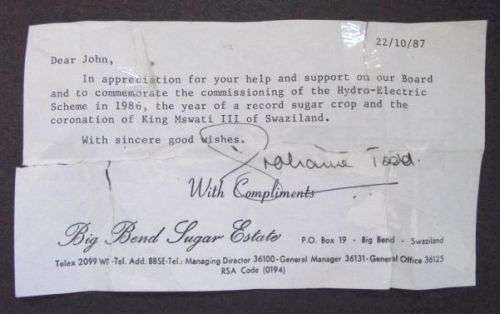 22/10/87
Dear John,
In appreciation for your help and support on our Board
and to commemorate the commissioning of the Hydro-Electric
Scheme in 1986, the year of a record sugar crop and the
coronation of King Mswati III of Swaziland.
With sincere good wishes.
Grahame Todd.
With Compliments
Big Bend Sugar Estate P.O. Box 19 - Big Bend - Swaziland
Telex 2099 WD -Tel. Add. BBSE-Tel.: Managing Director 36100-General Manager 36131-General Office 36125
RSA Code (0194)